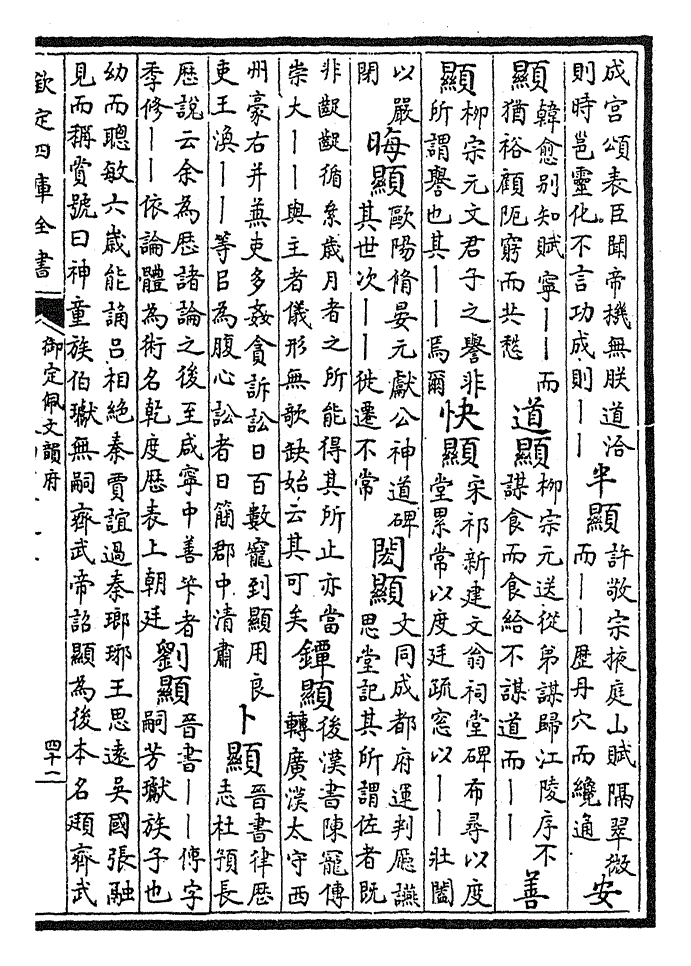 成宫頌表臣聞帝機無朕道洽
則時邕靈化不言功成則——
半顯
許敬宗掖庭山賦隔翠微
而——歴丹穴而纔通
安
顯
韓愈别知賦寧——而
猶裕顧阨窮而共愁
道顯
柳宗元送從弟謀歸江陵序不
謀食而食給不謀道而——
善
顯
柳宗元文君子之譽非
所謂譽也其——焉爾
快顯
宋祁新建文翁祠堂碑布尋以度
堂累常以度廷疏窓以——壯闔
以嚴
閉
晦顯
歐陽脩晏元獻公神道碑
其世次——徙遷不常
閎顯
文同成都府運判㕔讌
思堂記其所謂佐者既
非齪齪循絫歲月者之所能得其所止亦當
崇大——與主者儀形無歌缺始云其可矣
鐔顯
後漢書陳寵傳
轉廣漢太守西
州豪右并兼吏多姦貪訴訟日百數寵到顯用良
吏王渙——等㠯為腹心訟者日簡郡中清肅
卜顯
晉書律歴
志杜預長
歴說云余為歴諸論之後至咸寧中善筭者
季修——依論體為術名乾度歴表上朝廷
劉顯
晉書——傳字
嗣芳瓛族子也
幼而聰敏六歲能誦呂相絶秦賈誼過秦瑯琊王思遠吳國張融
見而稱賞號曰神童族伯瓛無嗣齊武帝詔顯為後本名頲齊武
欽定四庫全書
御定佩文韻府
四十二